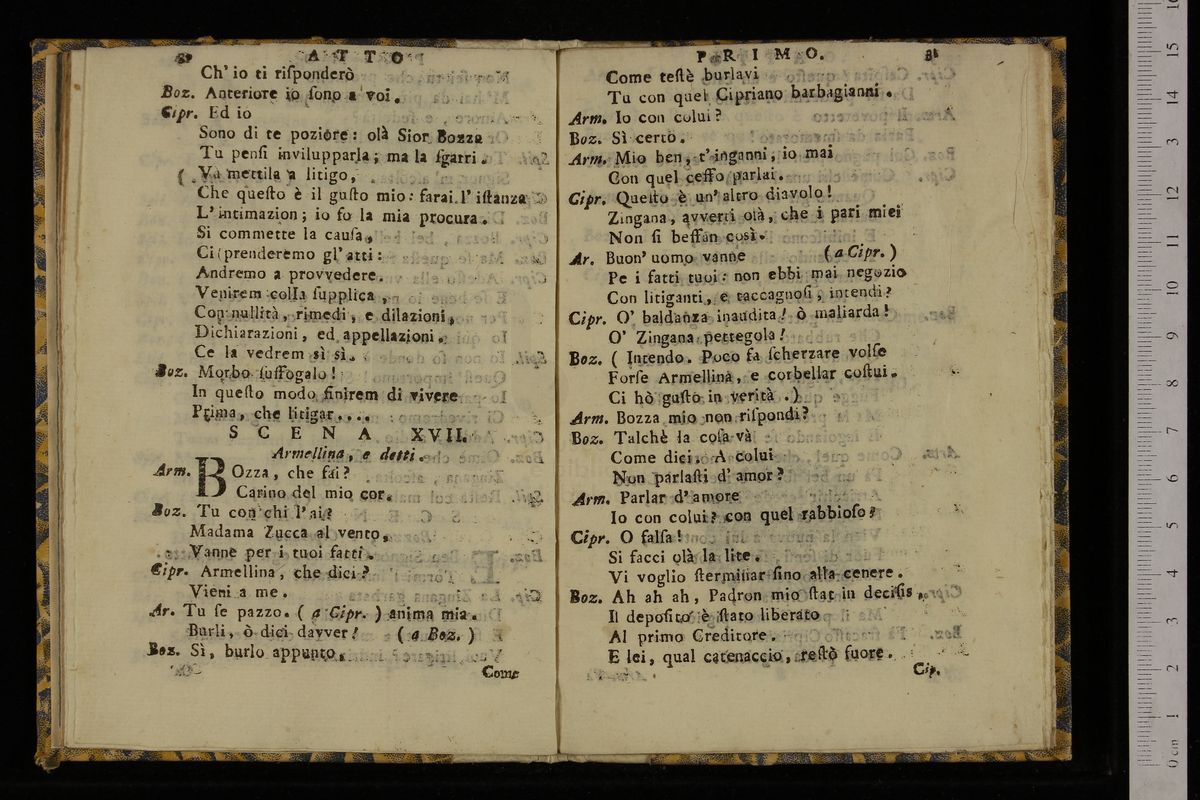 A T T O
Ch' io ti riſponderò
Boz. Anteriore io ſono a voi.
Cipr. Ed io
Sono di te poziore: olà Sior Bozza
Tu penſi invilupparla; ma la ſgarri.
Va mettila a litigo,
Che queſto è il guſto mio: farai l' iſtanza
L' intimazion; io fo la mia procura.
Si commette la cauſa,
Ci prenderemo gl' atti:
Andremo a provvedere.
Venirem colla ſupplica,
Con nullità, rimedi, e dilazioni,
Dichiarazioni, ed appellazioni.
Ce la vedrem sì sì.
Boz. Morbo ſuffogalo!
In queſto modo finirem di vivere
Prima, che litigar....
S C E N A XVII.
Armellina, e detti.
Arm. BOzza, che fai?
Carino del mio cor.
Boz. Tu con chi l' ai?
Madama Zucca al vento,
Vanne per i tuoi fatti.
Cipr. Armellina, che dici?
Vieni a me.
Ar. Tu ſe pazzo. ( a Cipr. ) anima mia.
Burli, ò dici davver! ( a Boz. )
Boz. Sì, burlo appunto,
Come
P R I M O.
Come teſtè burlavi
Tu con quel Cipriano barbagianni.
Arm. Io con colui?
Boz. Sì certo.
Arm. Mio ben, t' inganni, io mai
Con quel ceffo parlai.
Cipr. Queſto è un' altro diavolo!
Zingana, avverti olà, che i pari miei
Non ſi beffan così.
Ar. Buon' uomo vanne ( a Cipr. )
Pe i fatti tuoi: non ebbi mai negozio
Con litiganti, e taccagnoſi, intendi?
Cipr. O' baldanza inaudita! ò maliarda!
O' Zingana pettegola!
Boz. ( Intendo. Poco fa ſcherzare volſe
Forſe Armellina, e corbellar coſtui.
Ci hò guſto in verità.)
Arm. Bozza mio non riſpondi?
Boz. Talchè la coſa và
Come dici. A colui
Non parlaſti d' amor?
Arm. Parlar d' amore
Io con colui? con quel rabbioſo?
Cipr. O falſa!
Si facci olà la lite.
Vi voglio ſterminar ſino alla cenere.
Boz. Ah ah ah, Padron mio ſtat in deciſis,
Il depoſito è ſtato liberato
Al primo Creditore.
E lei, qual catenaccio, reſtò fuore.
Cip.